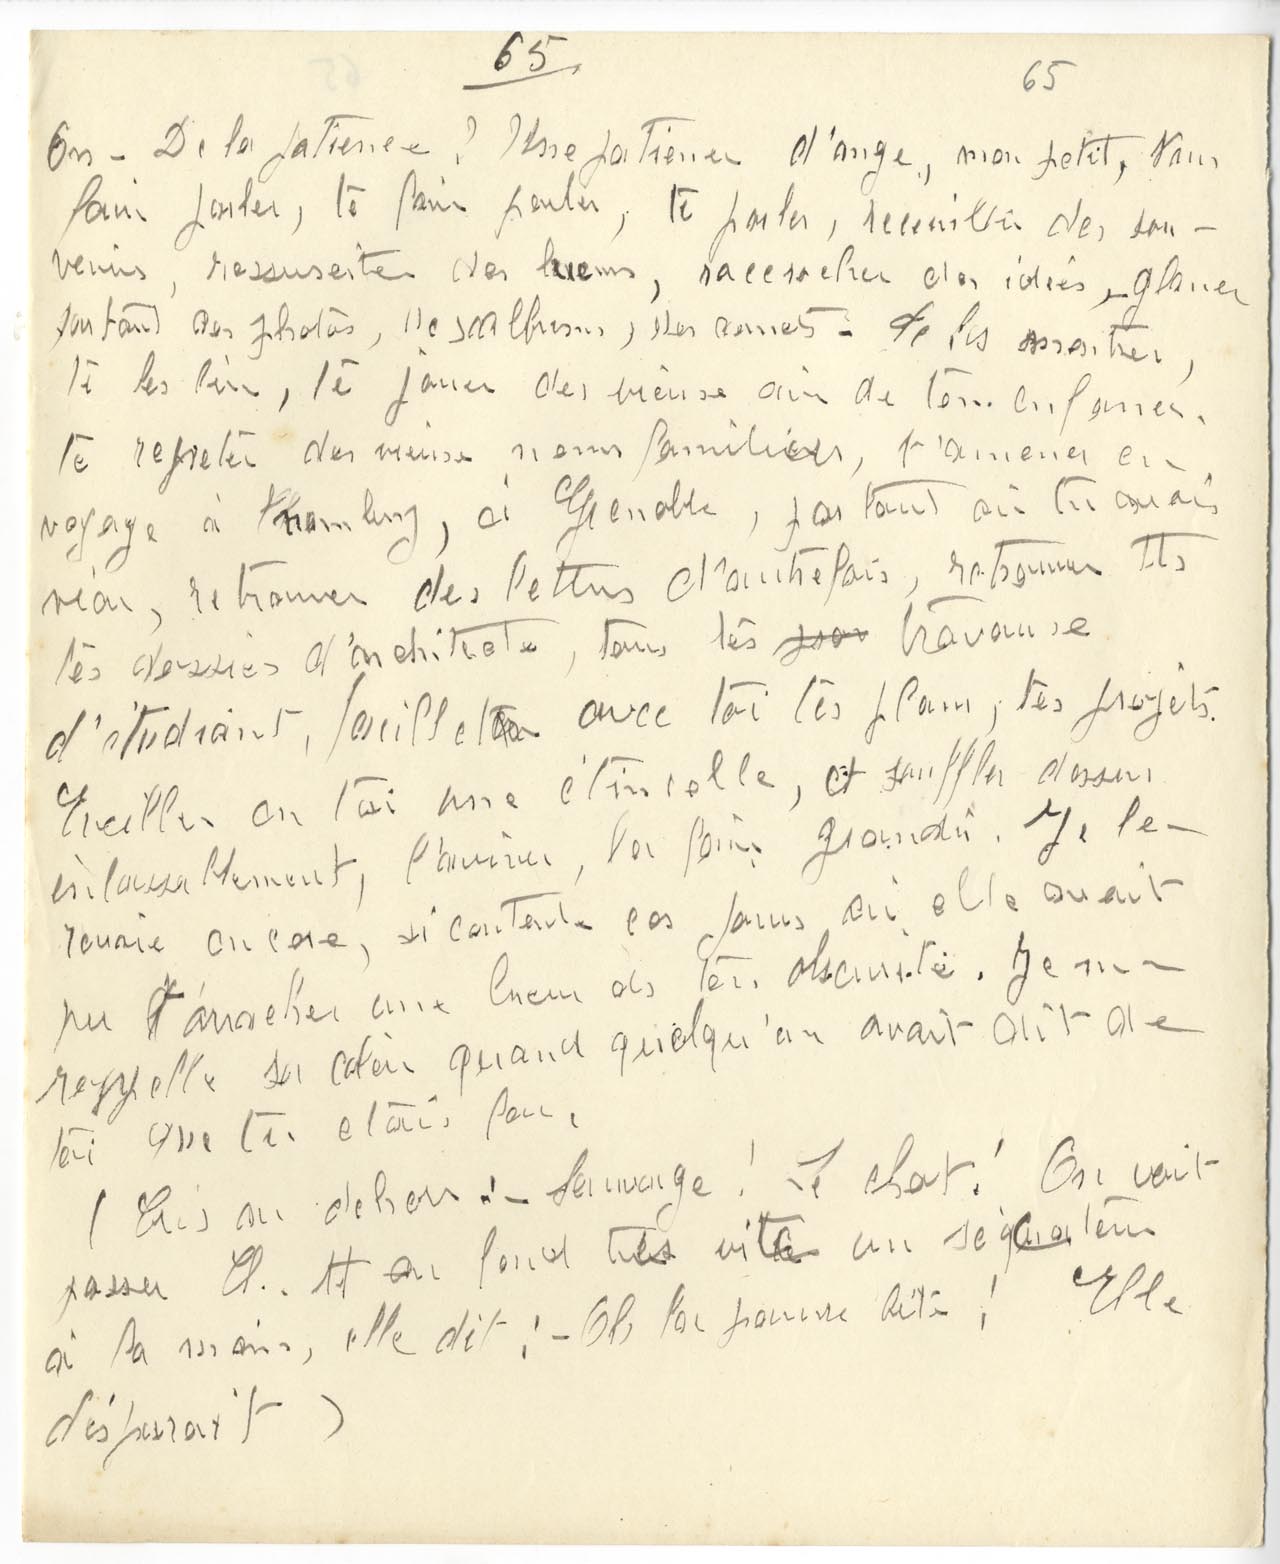 65
65
On - De la patience ? Une patience d'ange, mon petit, Nous
faire parler, te faire parler, te parler, recueillir des sou-
venirs, ressusciter des lueurs, raccrocher des idées, glaner
partout des photos, des albums, des carnets. Te les montrer,
te les lire, te jouer des vieux airs de ton enfance.
te répéter des vieux noms familiers, t'amener en
voyage à Hambourg, à Grenoble, partout où tu avais
vécu, retrouver des lettres d'autrefois, retrouver tts
tes dossiers d'architecte, tous tes travaux
d'étudiant, feuilleter avec toi tes plans, tes projets.
Eveiller en toi une étincelle, et souffler dessus
inlassablement, l'aviver, la faire grandir. Je le-
revois encore, si contente ces jours où elle avait
pu t'arracher une lueur de ton obscurité. Je m-
rappelle sa colère quand quelqu'un avait dit de
toi que tu étais fou.
( Cris au dehors : - Sauvage ! Le chat ! On voit
passer El.. tt au fond très vite un sécateur
à la main, elle dit : - Oh la pauvre bête ! Elle
disparait )